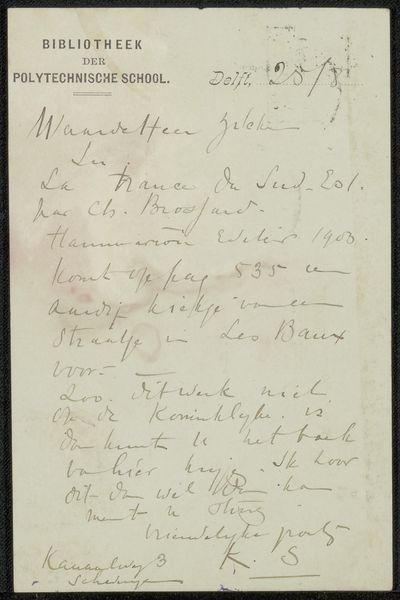 BIBLIOTHEEK
DER
POLYTECHNISCHE SCHOOL.
Delft, 25/8
Waarde Heer Zilcken
In
La France du Sud-Est.
par Ch. Brossard.
Flammarion Editeur 1903.
komt op pag 535 een
aardig kiekje van een
straatje in Les Baux
voor. —
Zoo dit werk niet
op de Koninklijke is
dan kunt u het boek
van hier krijgen. Ik hoor
dit dan wel
met
vriendelijke groet
Kanaalweg 3
Scheveningen
K. S